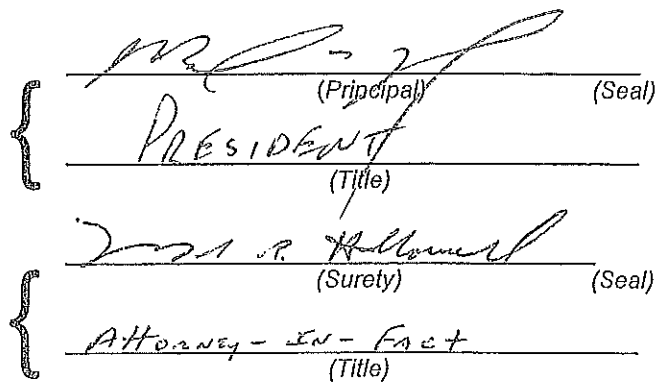 (Principal) (Seal)
PRESIDENT
(Title)
R. Hollowell
(Surety) (Seal)
Attorney-In-Fact
(Title)